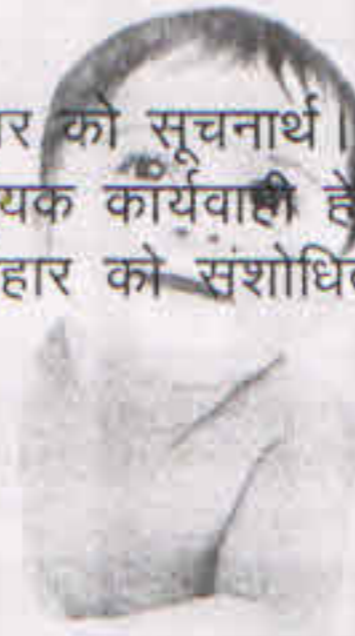 र को सूचनार्थ।
यक कार्यवाही हे
हार को संशोधित